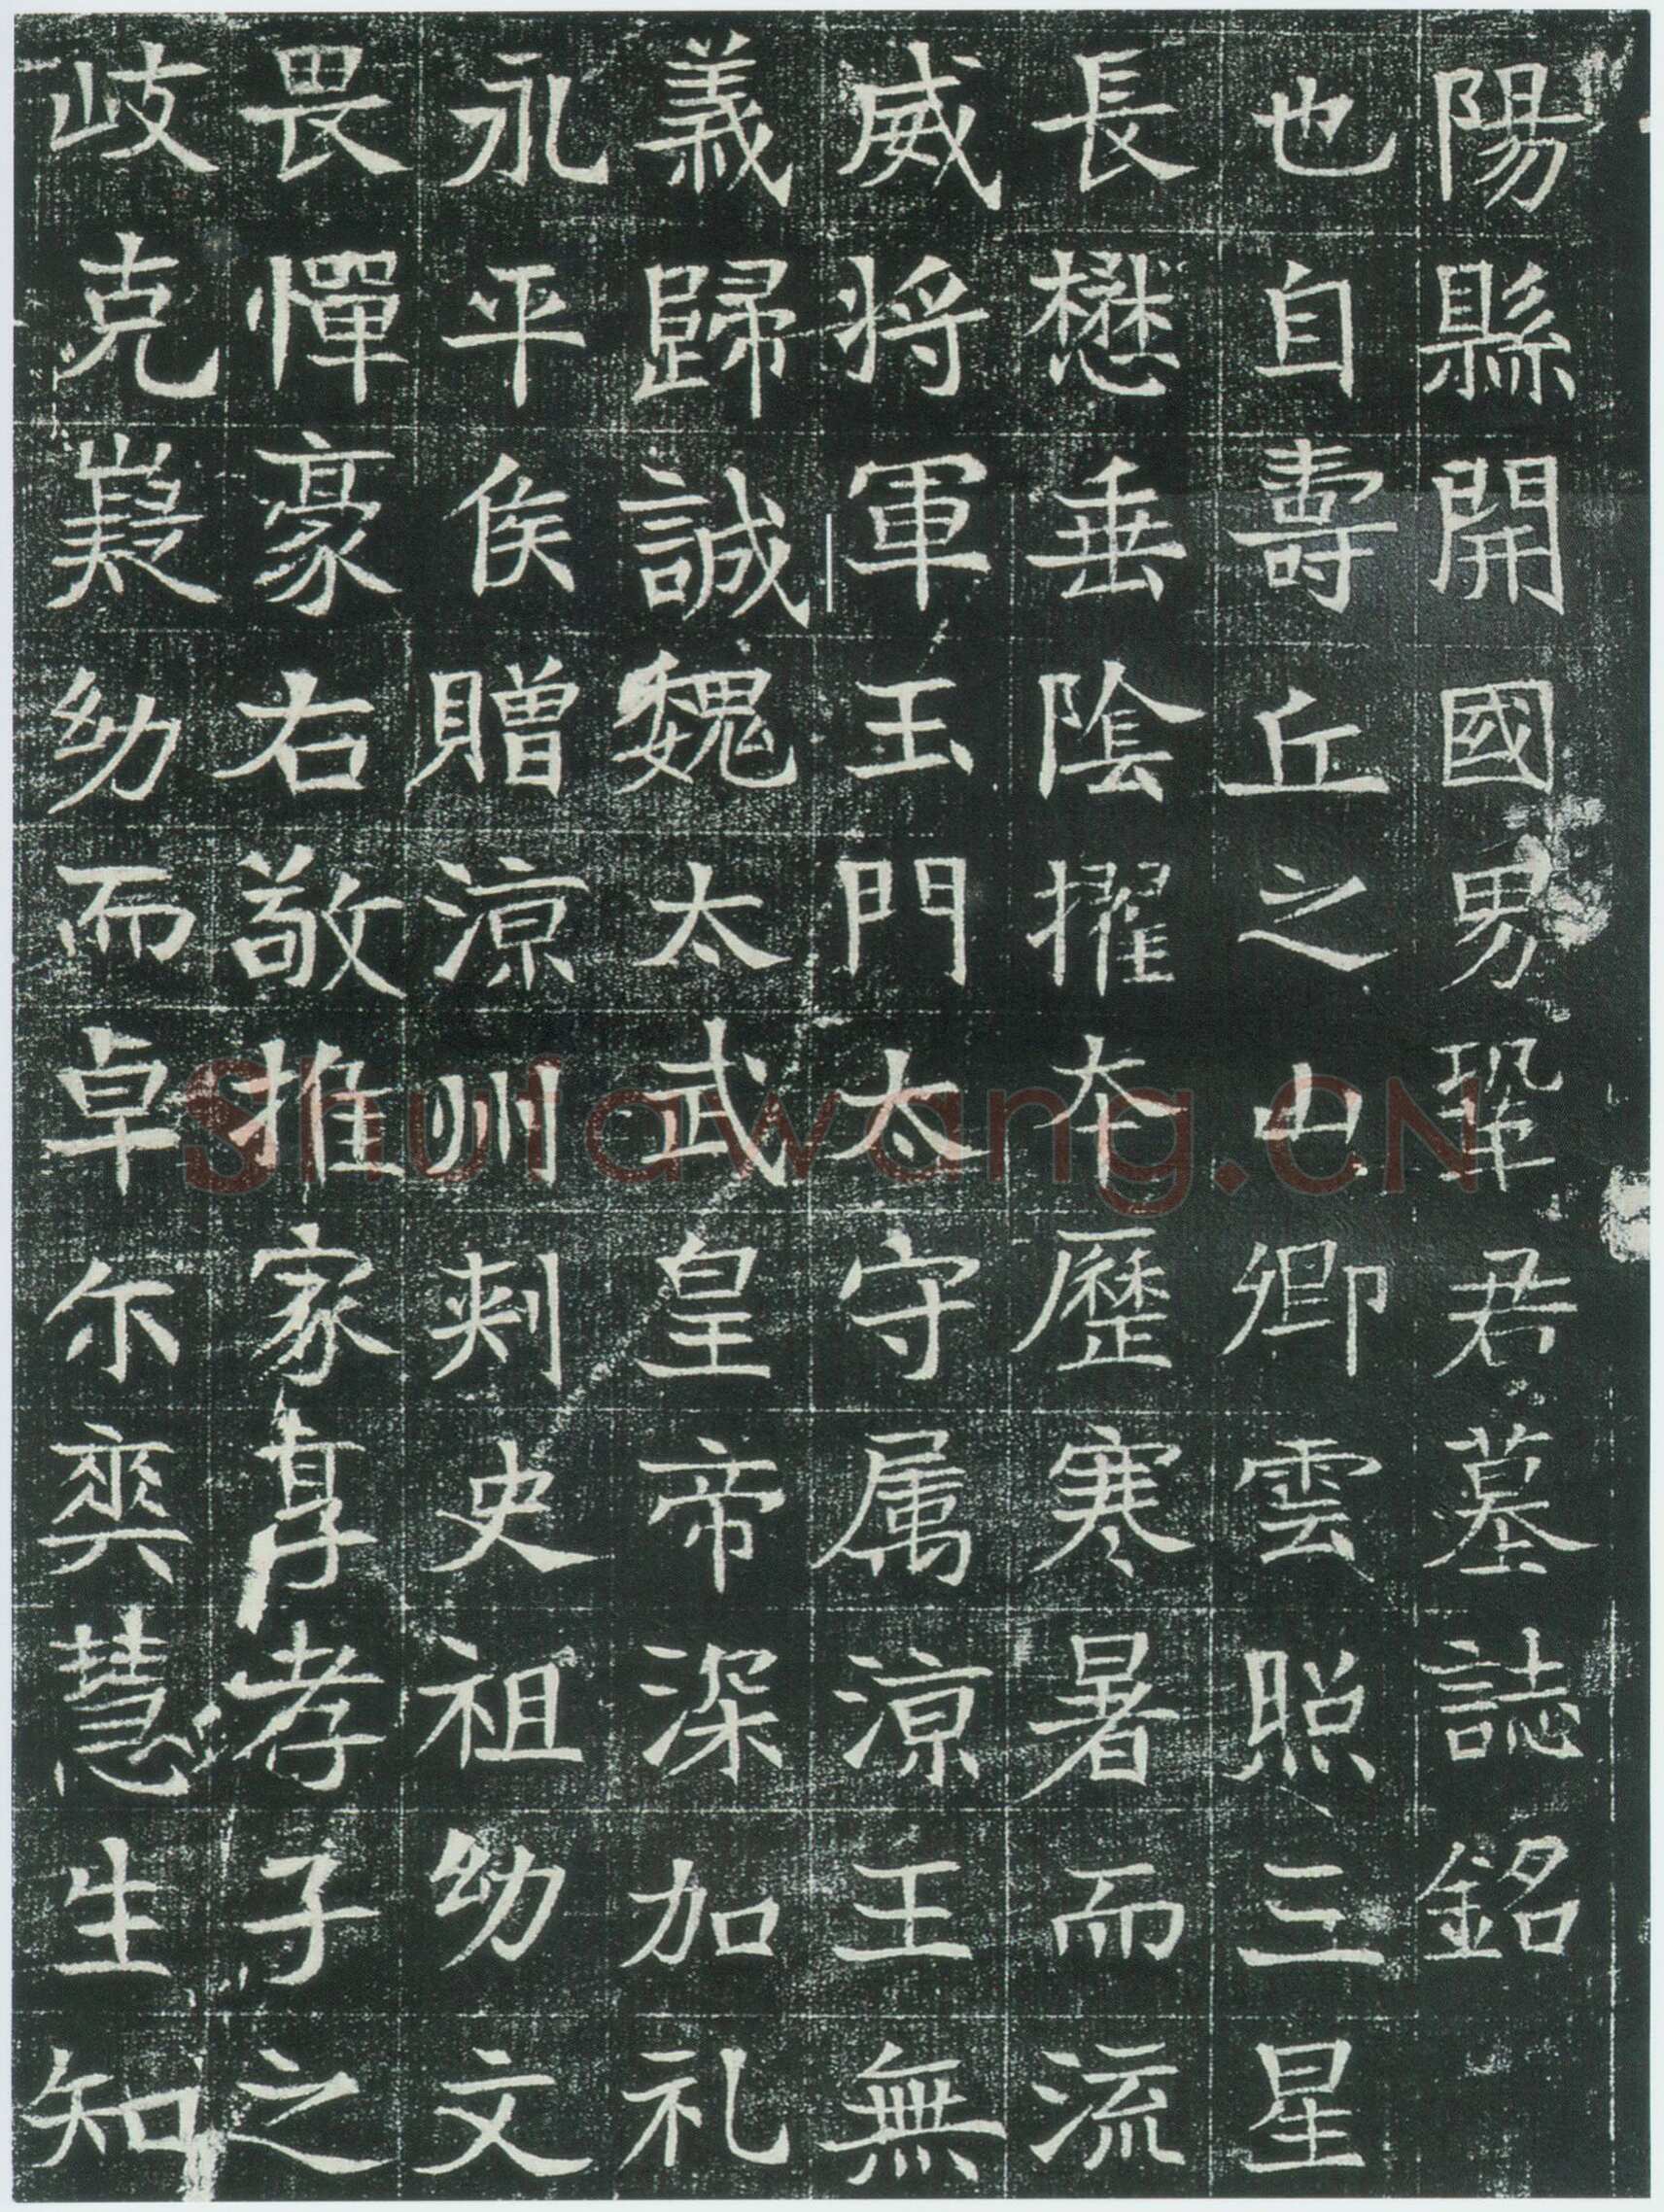 陽縣開國男鞏君墓誌銘
也自壽丘之山卿雲照三星
長懋垂陰擢夲歷寒暑而流
威將軍玉門太守属涼王無
義歸誠魏太武皇帝深加礼
永平侯贈涼州刺史祖幼文
畏憚豪右敬推家享孝子之
岐克嶷幼而卓尔奕慧生知
Shufawang.CN